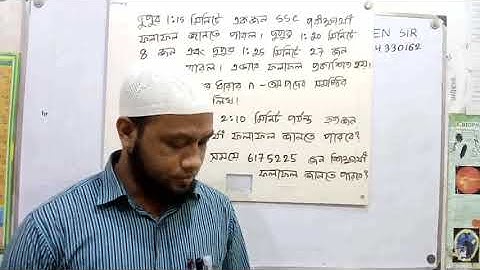 দুপুর 1:15 মিনিটে একজন SSC পরীক্ষার্থী
ফলাফল জানতে পারল। দুপুর 1:20 মিনিটে
8 জন এবং দুপুর 1:25 মিনিটে 27 জন
পারল। এভাবে ফলাফল প্রকাশিত হয়।
ধারার n-তম পদের সমষ্টির
লিখ।
2:10 মিনিট পর্যন্ত কতজন
ফলাফল জানতে পারবে?
সময়ে 6175225 জন শিক্ষার্থী
ফলাফল জানতে পারবে?
EN SIR
4330162